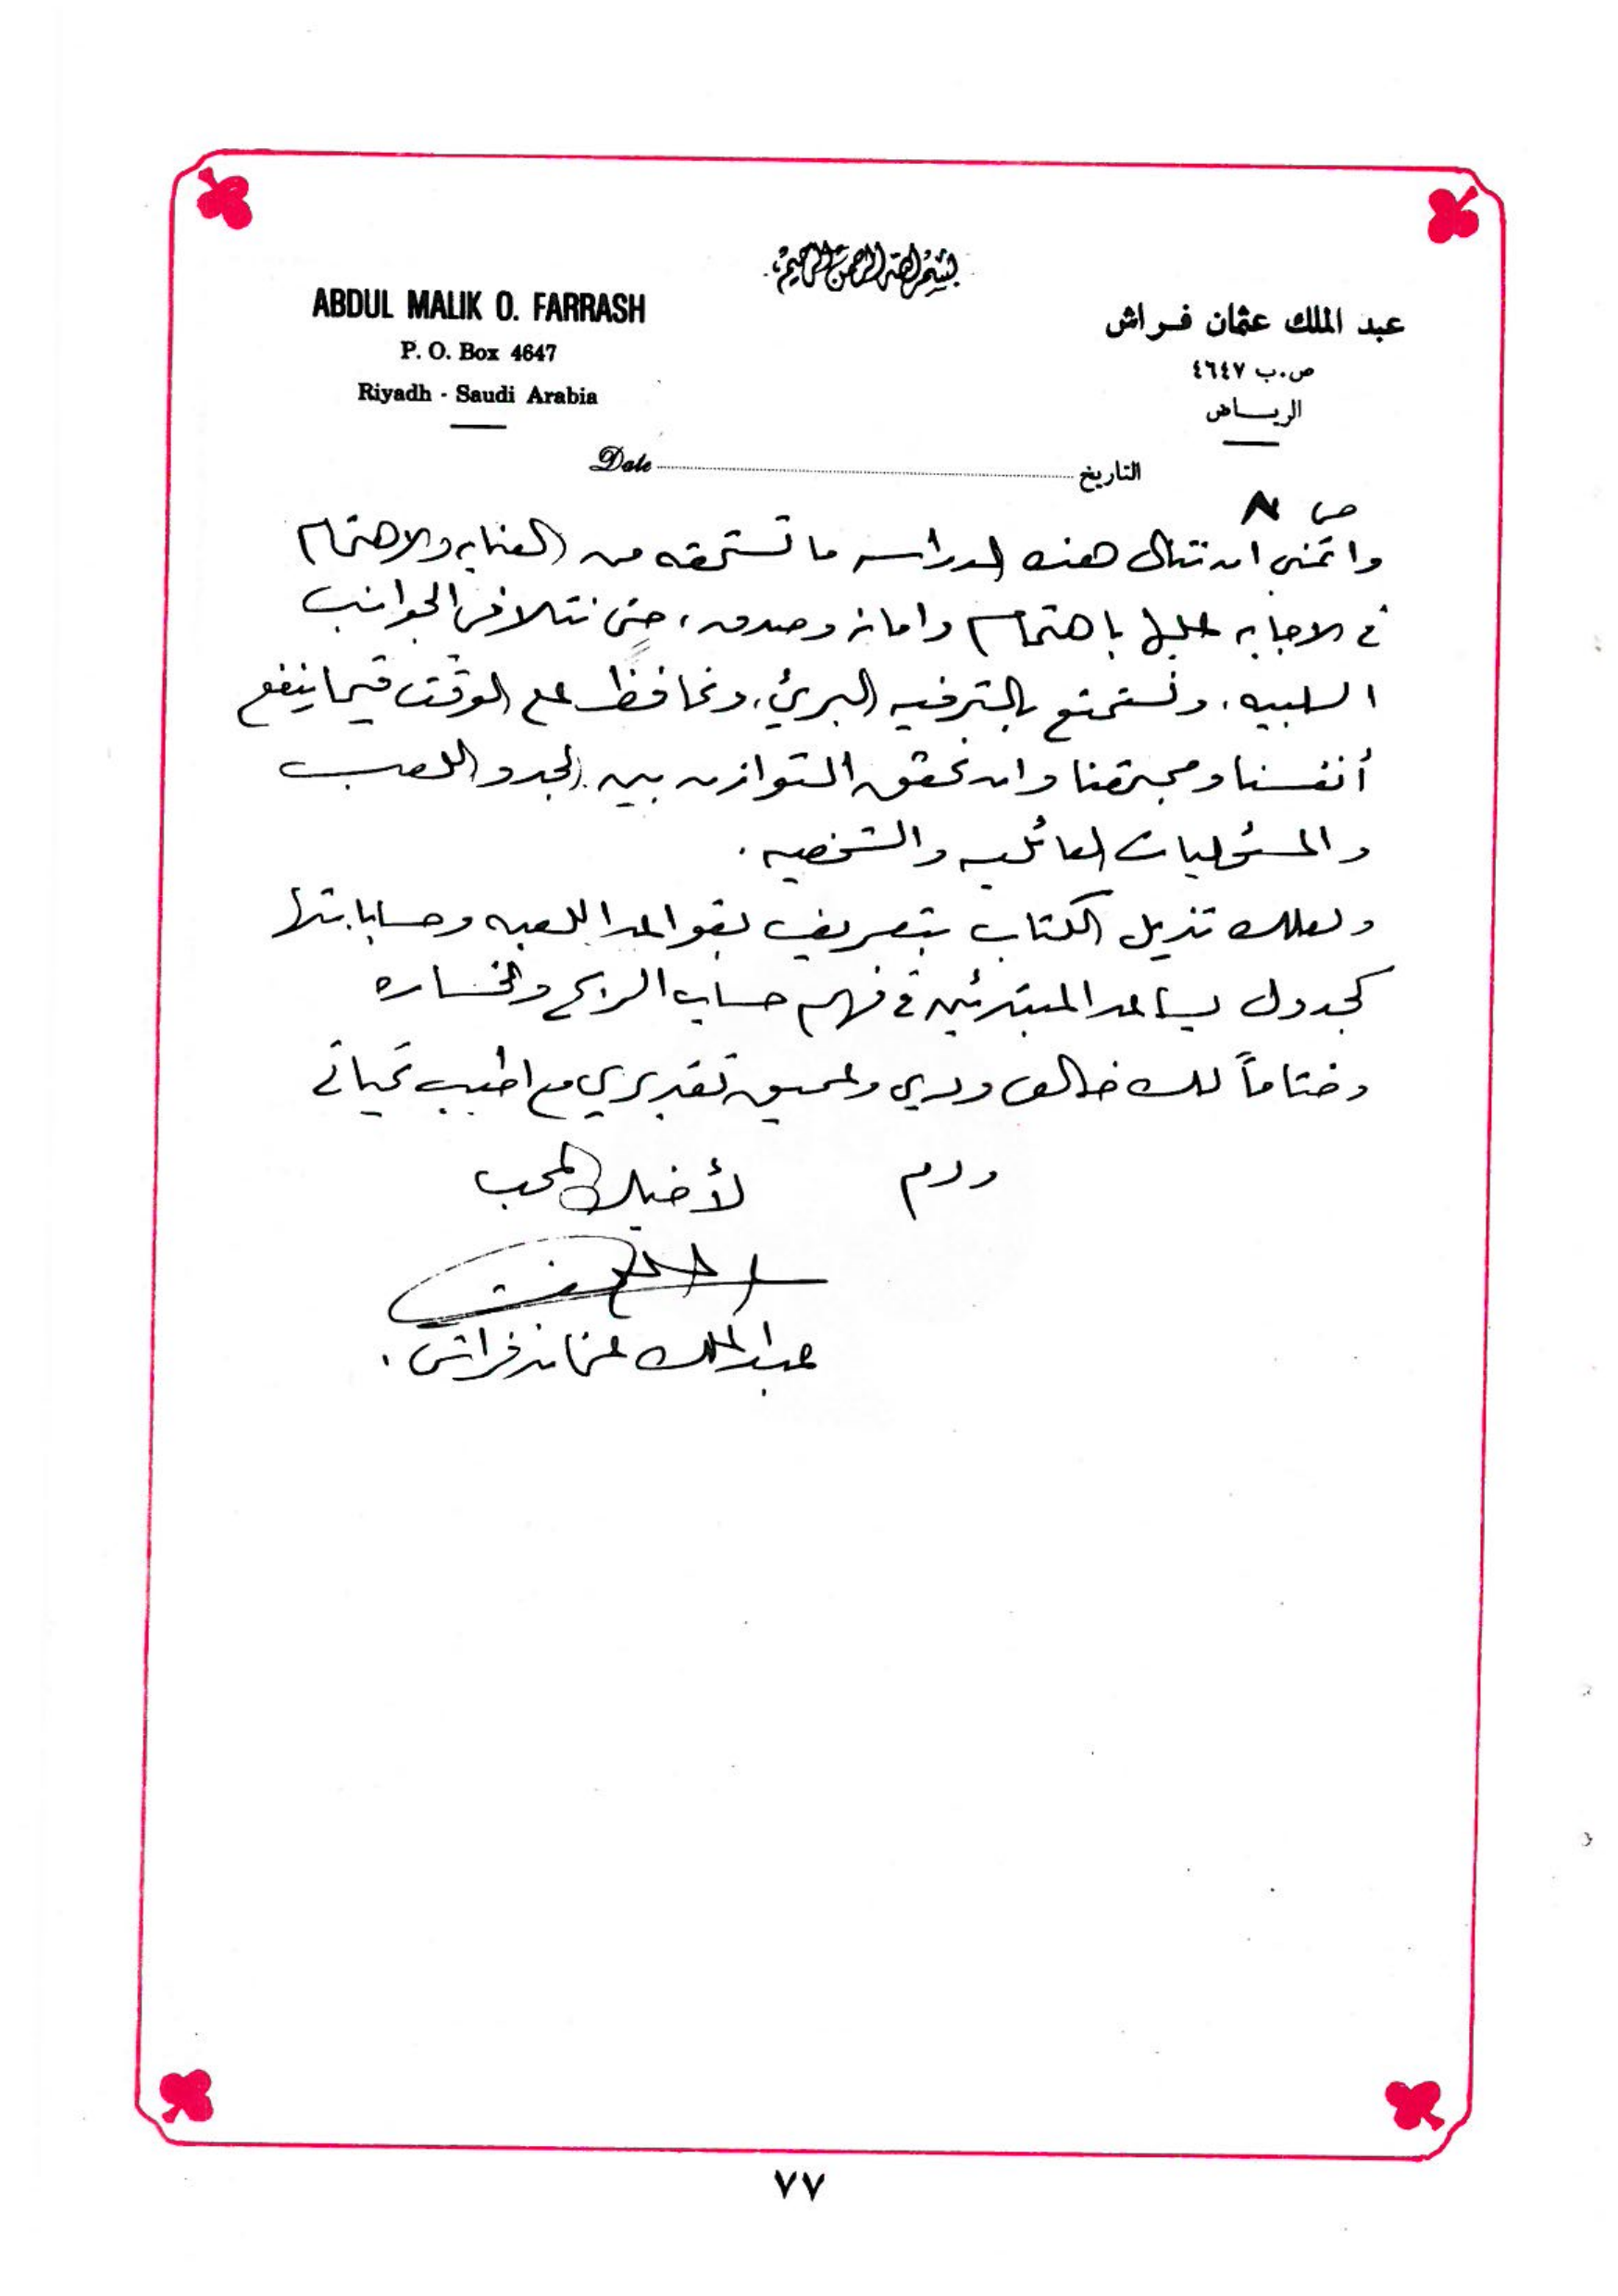 بسم الله الرحمن الرحيم
ABDUL MALIK O. FARRASH
P. O. Box 4647
Riyadh - Saudi Arabia
عبد الملك عثمان فراش
ص.ب ٤٦٤٧
الرياض
Date التاريخ
ص
واتمنى ان تنال هذه الدراسه ما تستحقه من العنايه والاهتمام
في الاجابه عليها باهتمام وامانه وصدق، حتى نتلافى الجوانب
السلبيه، ونستمتع بالترفيه البريئ، ونحافظ على الوقت فيما ينفع
أنفسنا ومجتمعنا وان نحقق التوازن بين الجد واللعب
والمسئوليات العائليه والشخصيه.
ولعلك تذيل الكتاب بتعريف بقواعد اللعبه وحساباتها
كجدول يساعد المبتدئين في فهم حساب الربح والخساره
وختاماً لك خالص ودي وعميق تقديري مع اطيب تحياتي
ودم لأخيك المحب
عبدالملك عثمان فراش.
٧٧